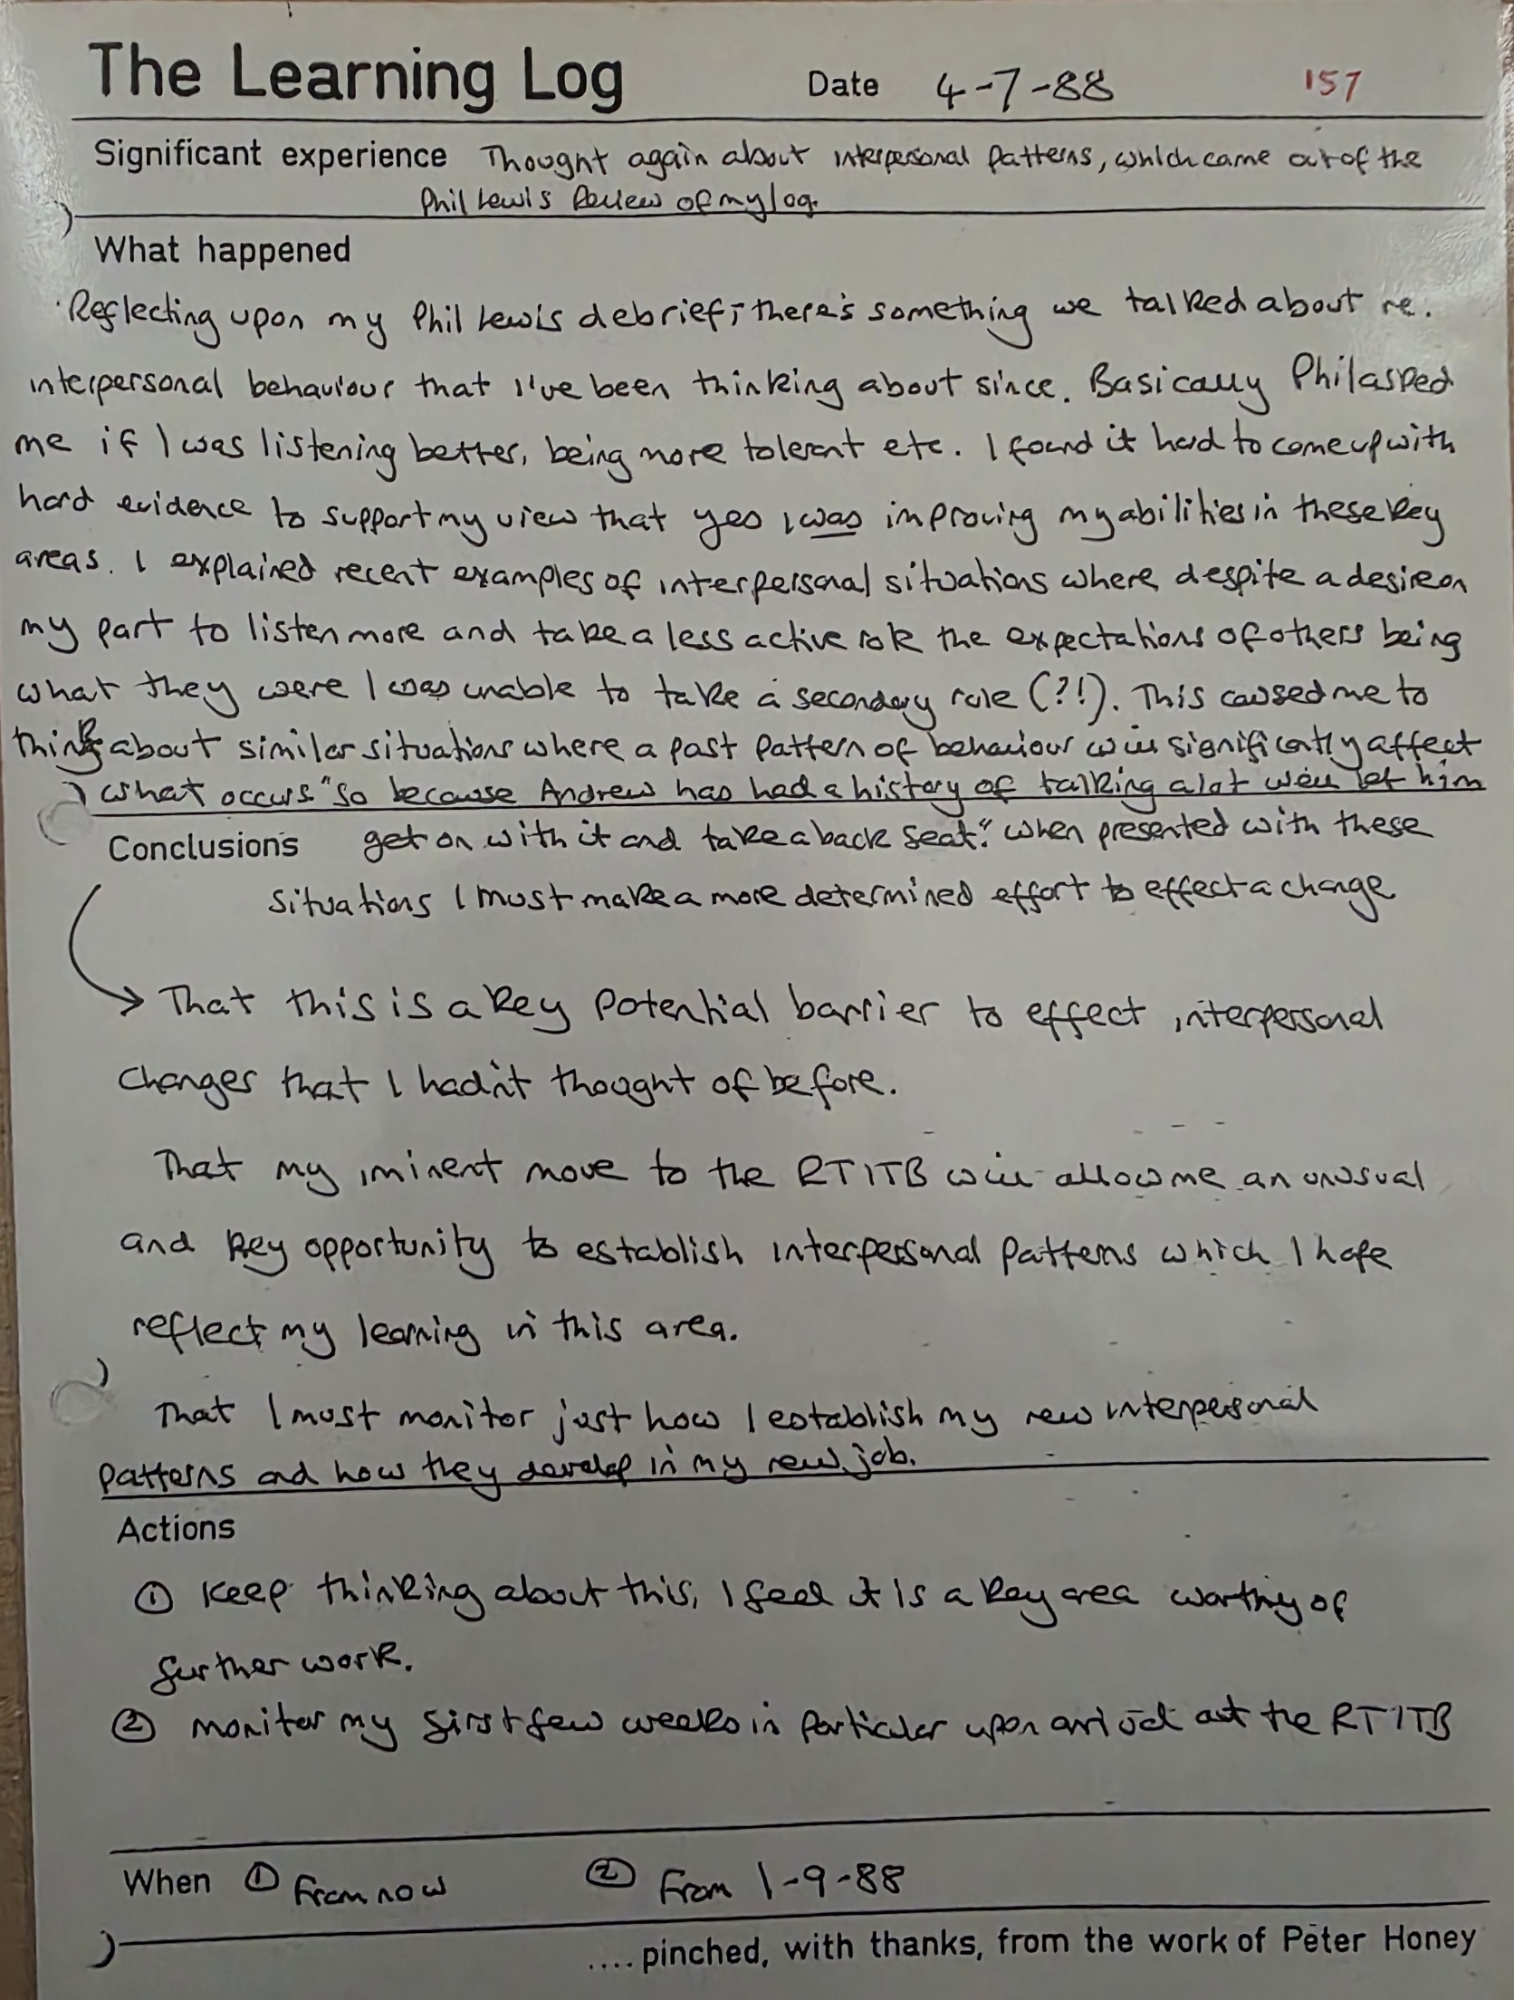 The Learning Log Date 4-7-88 157
Significant experience Thought again about interpersonal patterns, which came out of the
Phil Lewis Review of my log.
What happened
Reflecting upon my Phil Lewis debrief, there's something we talked about re.
interpersonal behaviour that I've been thinking about since. Basically Phil asked
me if I was listening better, being more tolerant etc. I found it hard to come up with
hard evidence to support my view that yes I was improving my abilities in these key
areas. I explained recent examples of interpersonal situations where despite a desire on
my part to listen more and take a less active role the expectations of others being
what they were I was unable to take a secondary role (?!). This caused me to
think about similar situations where a past pattern of behaviour will significantly affect
what occurs "So because Andrew has had a history of talking a lot we'll let him
Conclusions get on with it and take a back seat." When presented with these
situations I must make a more determined effort to effect a change
→ That this is a key potential barrier to effect interpersonal
changes that I hadn't thought of before.
That my iminent move to the RTITB will allow me an unusual
and key opportunity to establish interpersonal patterns which I hope
reflect my learning in this area.
That I must monitor just how I establish my new interpersonal
patterns and how they develop in my new job.
Actions
① Keep thinking about this, I feel it is a key area worthy of
further work.
② monitor my first few weeks in particular upon arrival at the RTITB
When ① From now ② From 1-9-88
.... pinched, with thanks, from the work of Peter Honey